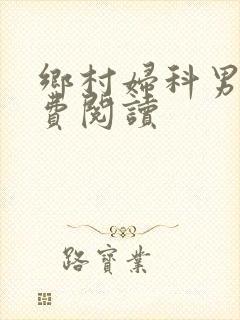 鄉村婦科男
費閱讀
路寶業